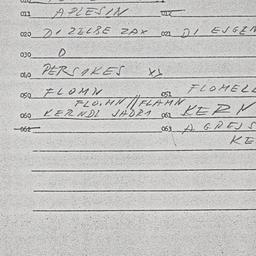 011 AZLESIN 012
020 DI ZELBE ZAX 021 DI EIGEN
030 O
040 PERSAKES XX
050 FLOMN 051 FLOMELL
FLO.MN // FLAMN
060 KERNDL 061 KERN
062 063 AGRES
KE